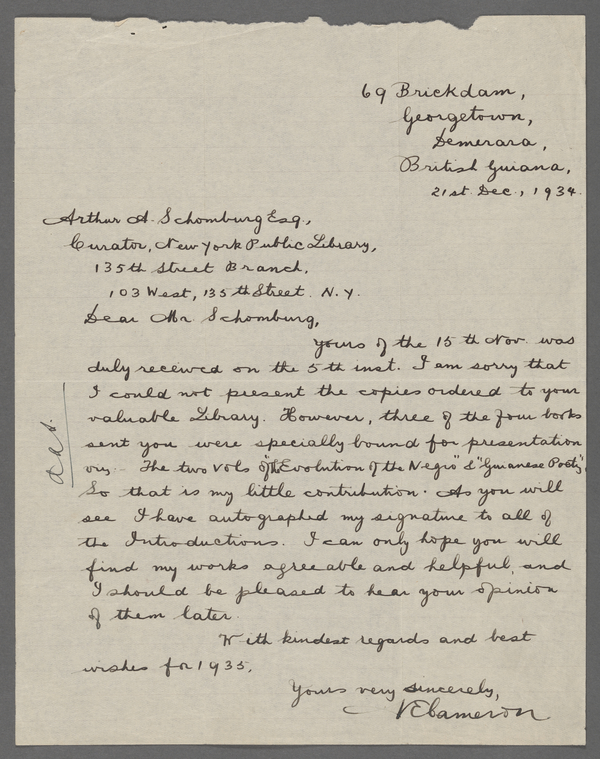 69 Brickdam,
Georgetown,
Demerara,
British Guiana,
21st. Dec., 1934.
Arthur A. Schomburg Esq.,
Curator, New York Public Library,
135th Street Branch,
103 West, 135th Street. N.Y.
Dear Mr Schomburg,
Yours of the 15th Nov. was
duly received on the 5th inst. I am sorry that
I could not present the copies ordered to your
valuable Library. However, three of the four books
sent you were specially bound for presentation
The two vols of "The Evolution of the Negro" & "Guianese Poetry",
So that is my little contribution. As you will
see I have autographed my signature to all of
the Introductions. I can only hope you will
find my works agreeable and helpful, and
I should be pleased to hear your opinion
of them later.
With kindest regards and best
wishes for 1935.
Yours very sincerely,
NECameron